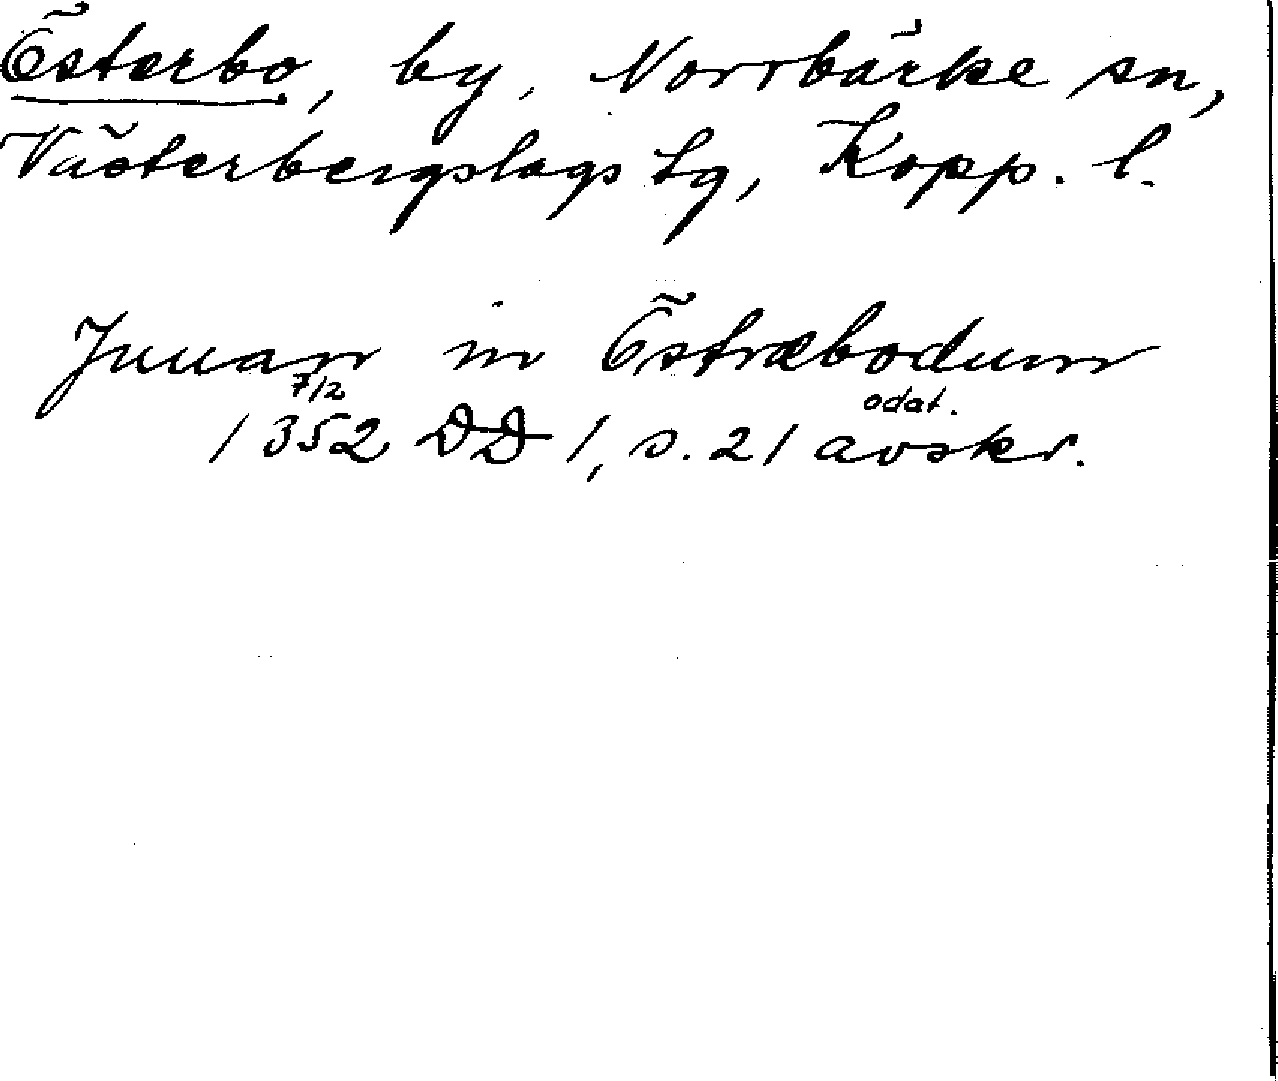 Österbo, by, Norrbärke sn,
Västerbergslags tg, Kopp. l.
Junan in Östræbodum
1352 7/2 DD 1, s. 21 odat. avskr.